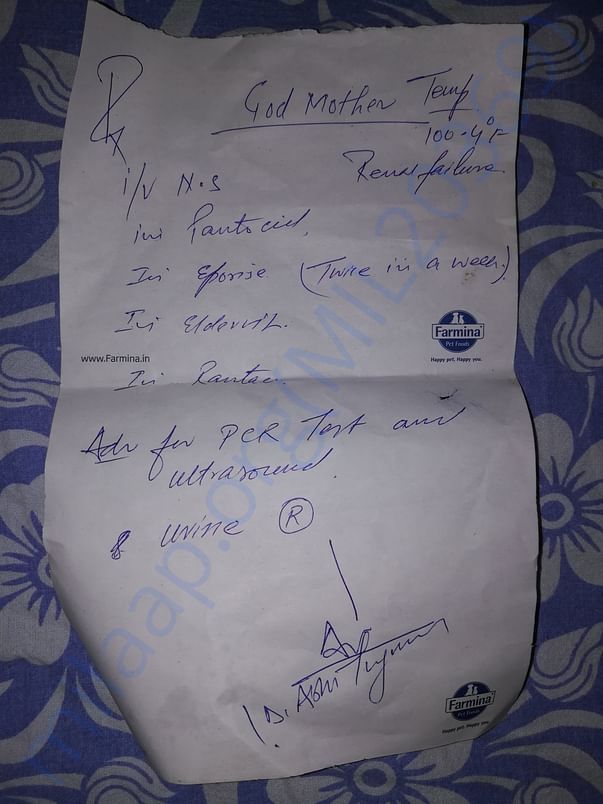 Rx
God Mother Temp
100.4°F
Renal failure.
i/v N.S
Inj Pantocid,
Inj Eporise (Twice in a week.)
Inj Eldervit.
www.Farmina.in
Farmina
Pet Foods
Happy pet. Happy you.
Inj Rantac.
Adv for PCR Test and
ultrasound.
& urine R
Dr Abhi
Farmina
Pet Foods
Happy pet. Happy you.